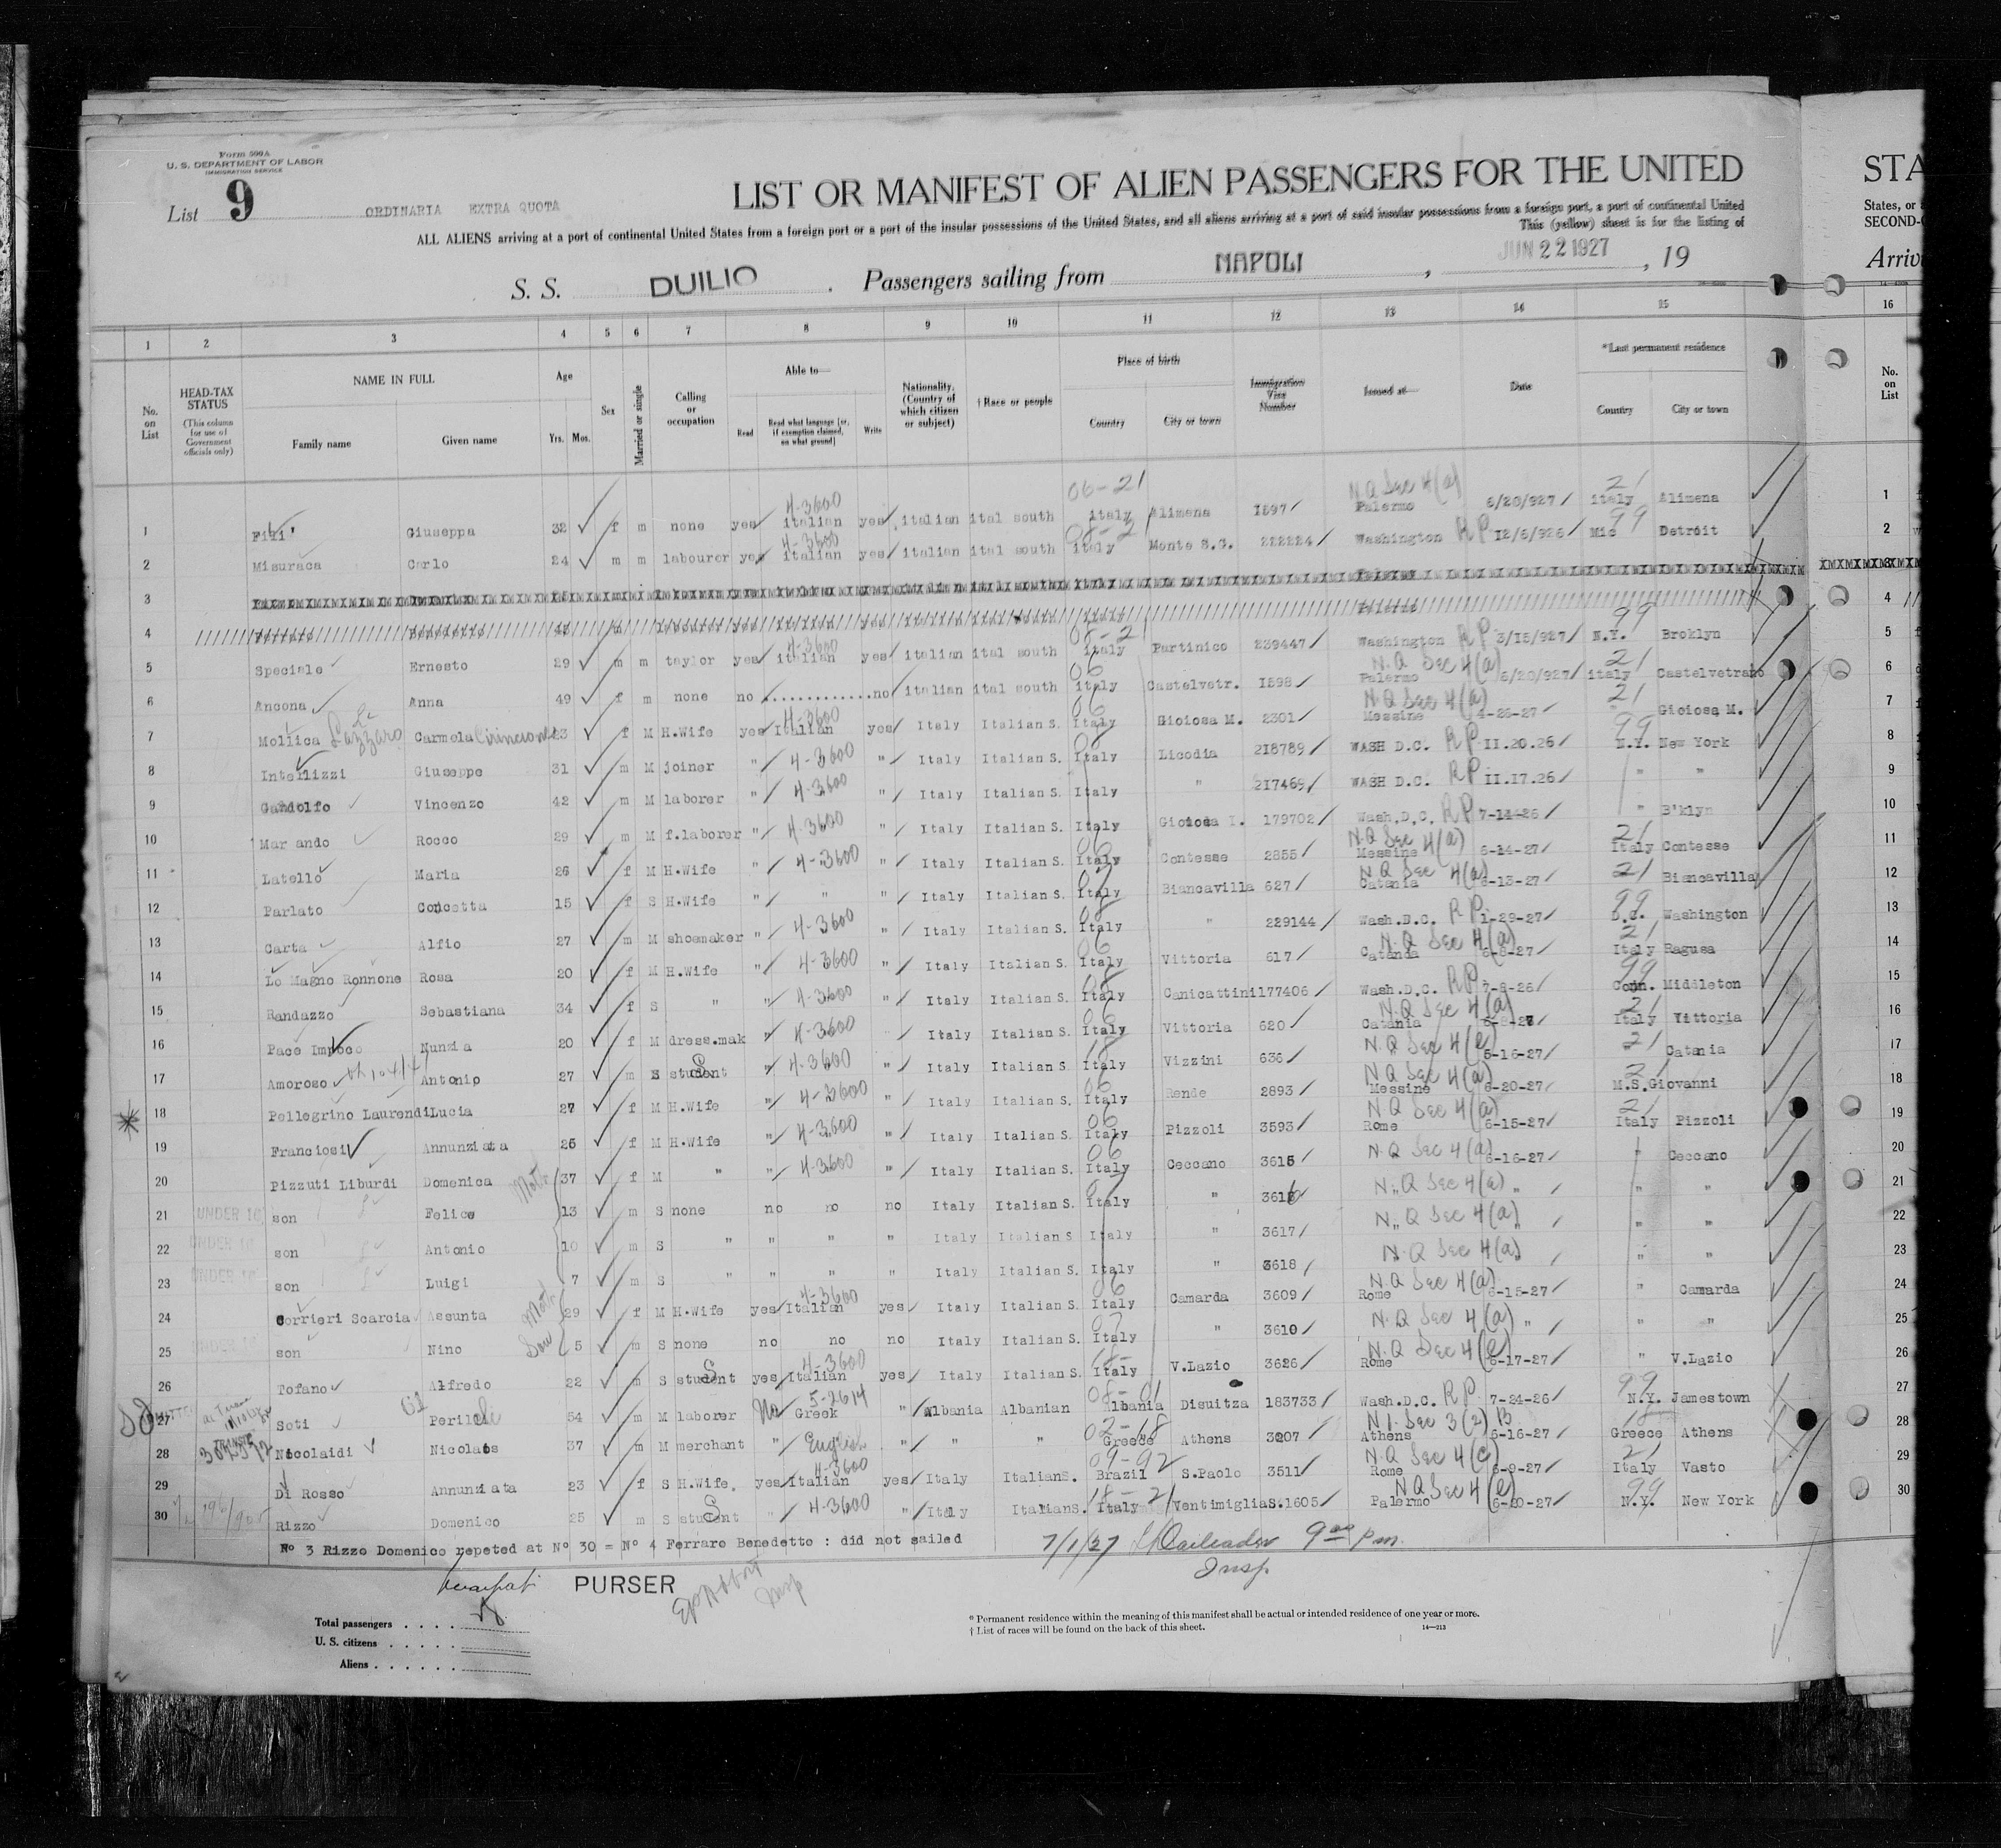 Form 500A
U. S. DEPARTMENT OF LABOR
IMMIGRATION SERVICE
List 9 ORDINARIA EXTRA QUOTA
LIST OR MANIFEST OF ALIEN PASSENGERS FOR THE UNITED
STA
ALL ALIENS arriving at a port of continental United States from a foreign port or a port of the insular possessions of the United States, and all aliens arriving at a port of said insular possessions from a foreign port, a port of continental United
States, or
This (yellow) sheet is for the listing of
SECOND-
S. S. DUILIO . Passengers sailing from NAPOLI , JUN 22 1927 , 19
Arriv
1 2 3 4 5 6 7 8 9 10 11 12 13 14 15 16
No. on List
HEAD-TAX STATUS (This column for use of Government officials only)
NAME IN FULL Family name Given name
Age Yrs. Mos.
Sex
Married or single
Calling or occupation
Able to— Read Read what language [or, if exemption claimed, on what ground] Write
Nationality. (Country of which citizen or subject)
† Race or people
Place of birth Country City or town
Immigration Visa Number
Issued at—
Date
*Last permanent residence Country City or town
No. on List
1 Giuseppa 32 f m none yes 4-3600 italian yes italian ital south 06-21 italy Alimena 1597 N Q Sec 4(a) Palermo 6/20/927 21 italy Alimena 1
2 Misuraca Carlo 24 m m labourer yes 4-3600 italian yes italian ital south 08-2 italy Monte S.G. 222224 Washington R P 12/6/926 99 Mic Detroit 2
3
4 4
5 Speciale Ernesto 29 m m taylor yes 4-3600 italian yes italian ital south 08-2 italy Partinico 239447 Washington R P 3/15/927 99 N.Y. Broklyn 5
6 Ancona Anna 49 f m none no ............. no italian ital south 06 italy Castelvetr. 1598 N.Q Sec 4(a) Palermo 6/20/927 21 italy Castelvetrano 6
7 Mollica Lazzaro Carmela Cirincione 23 f M H.Wife yes 4-3600 Italian yes Italy Italian S. 06 Italy Gioiosa M. 2301 N.Q Sec 4(a) Messine 4-26-27 21 " Gioiosa M. 7
8 Intellizzi Giuseppe 31 m M joiner " 4-3600 " Italy Italian S. 08 Italy Licodia 218789 WASH D.C. R P 11.20.26 99 N.Y. New York 8
9 Gandolfo Vincenzo 42 m M laborer " 4-3600 " Italy Italian S. Italy " 217469 WASH D.C. R P 11.17.26 " " 9
10 Mar ando Rocco 29 m M f.laborer " 4-3600 " Italy Italian S. Italy Gioiosa I. 179702 Wash.D.C. R P 7-14-26 " B'klyn 10
11 Latello Maria 26 f M H.Wife " 4-3600 " Italy Italian S. 06 Italy Contesse 2855 N.Q Sec 4(a) Messine 6-14-27 21 Italy Contesse 11
12 Parlato Concetta 15 f S H.Wife " " " Italy Italian S. 07 Italy Biancavilla 627 N Q Sec 4(a) Catania 6-13-27 21 Biancavilla 12
13 Carta Alfio 27 m M shoemaker " 4-3600 " Italy Italian S. 08 Italy " 229144 Wash.D.C. R P 1-29-27 99 D.C. Washington 13
14 Lo Magno Ronnone Rosa 20 f M H.Wife " 4-3600 " Italy Italian S. 06 Italy Vittoria 617 N.Q Sec 4(a) Catania 6-8-27 21 Italy Ragusa 14
15 Randazzo Sebastiana 34 f S " " 4-3600 " Italy Italian S. 08 Italy Canicattini 177406 Wash.D.C. R P 7-8-26 99 Conn. Middleton 15
16 Pace Impoco Nunzia 20 f M dress.mak " 4-3600 " Italy Italian S. 06 Italy Vittoria 620 N.Q Sec 4(a) Catania 21 Italy Vittoria 16
17 Amoroso Antonio 27 m S student " 4-3600 " Italy Italian S. 18 Italy Vizzini 636 N.Q Sec 4(e) 5-16-27 21 Catania 17
18 Pellegrino Laurendi Lucia 27 f M H.Wife " 4-3600 " Italy Italian S. 06 Italy Rende 2893 N Q Sec 4(a) Messine 6-20-27 21 M.S.Giovanni 18
19 Franciosi Annunziata 25 f M H.Wife " 4-3600 " Italy Italian S. 06 Italy Pizzoli 3593 N Q Sec 4(a) Rome 6-15-27 21 Italy Pizzoli 19
20 Pizzuti Liburdi Domenica Moth 37 f M " " 4-3600 " Italy Italian S. 06 Italy Ceccano 3615 N.Q Sec 4(a) 6-16-27 " Ceccano 20
21 UNDER 16 son Felice 13 m S none no no no Italy Italian S. 07 Italy " 3616 N.Q Sec 4(a) " " " 21
22 UNDER 16 son Antonio 10 m S " " " " Italy Italian S. Italy " 3617 N.Q Sec 4(a) " " 22
23 UNDER 16 son Luigi 7 m S " " " " Italy Italian S. Italy " 3618 N.Q Sec 4(a) " " 23
24 Corrieri Scarcia Assunta Moth 29 f M H.Wife yes 4-3600 Italian yes Italy Italian S. 06 Italy Camarda 3609 N.Q Sec 4(a) Rome 6-15-27 " Camarda 24
25 UNDER 16 son Nino Son 5 m S none no no no Italy Italian S. 07 Italy " 3610 N.Q Sec 4(a) " " " 25
26 Tofano Alfredo 22 m S student yes 4-3600 Italian yes Italy Italian S. 18 Italy V.Lazio 3626 N.Q Sec 4(e) Rome 6-17-27 " V.Lazio 26
27 Soti 54 m M laborer No 5-2614 Greek " Albania Albanian 08-01 Albania Disuitza 183733 Wash.D.C. R P 7-24-26 99 N.Y. Jamestown 27
28 Nicolaidi Nicolaos 37 m M merchant " English " " " 02-18 Greece Athens 3207 N I Sec 3(2) B Athens 6-16-27 18 Greece Athens 28
29 Di Rosso Annunziata 23 f S H.Wife. yes 4-3600 Italian yes Italy Italian S. 09-92 Brazil S.Paolo 3511 N.Q Sec 4(c) Rome 6-9-27 21 Italy Vasto 29
30 Rizzo Domenico 25 m S student " 4-3600 " Italy Italian S. 18-21 Italy Ventimiglia S. 1605 N Q Sec 4(e) Palermo 6-20-27 99 N.Y. New York 30
Nº 3 Rizzo Domenico repeted at Nº 30 = Nº 4 Ferraro Benedetto : did not sailed
7/1/27 9 00 Pm.
Insp.
PURSER
Insp
Total passengers . . . .
U. S. citizens . . . . .
Aliens . . . . . .
* Permanent residence within the meaning of this manifest shall be actual or intended residence of one year or more.
† List of races will be found on the back of this sheet.
14—213